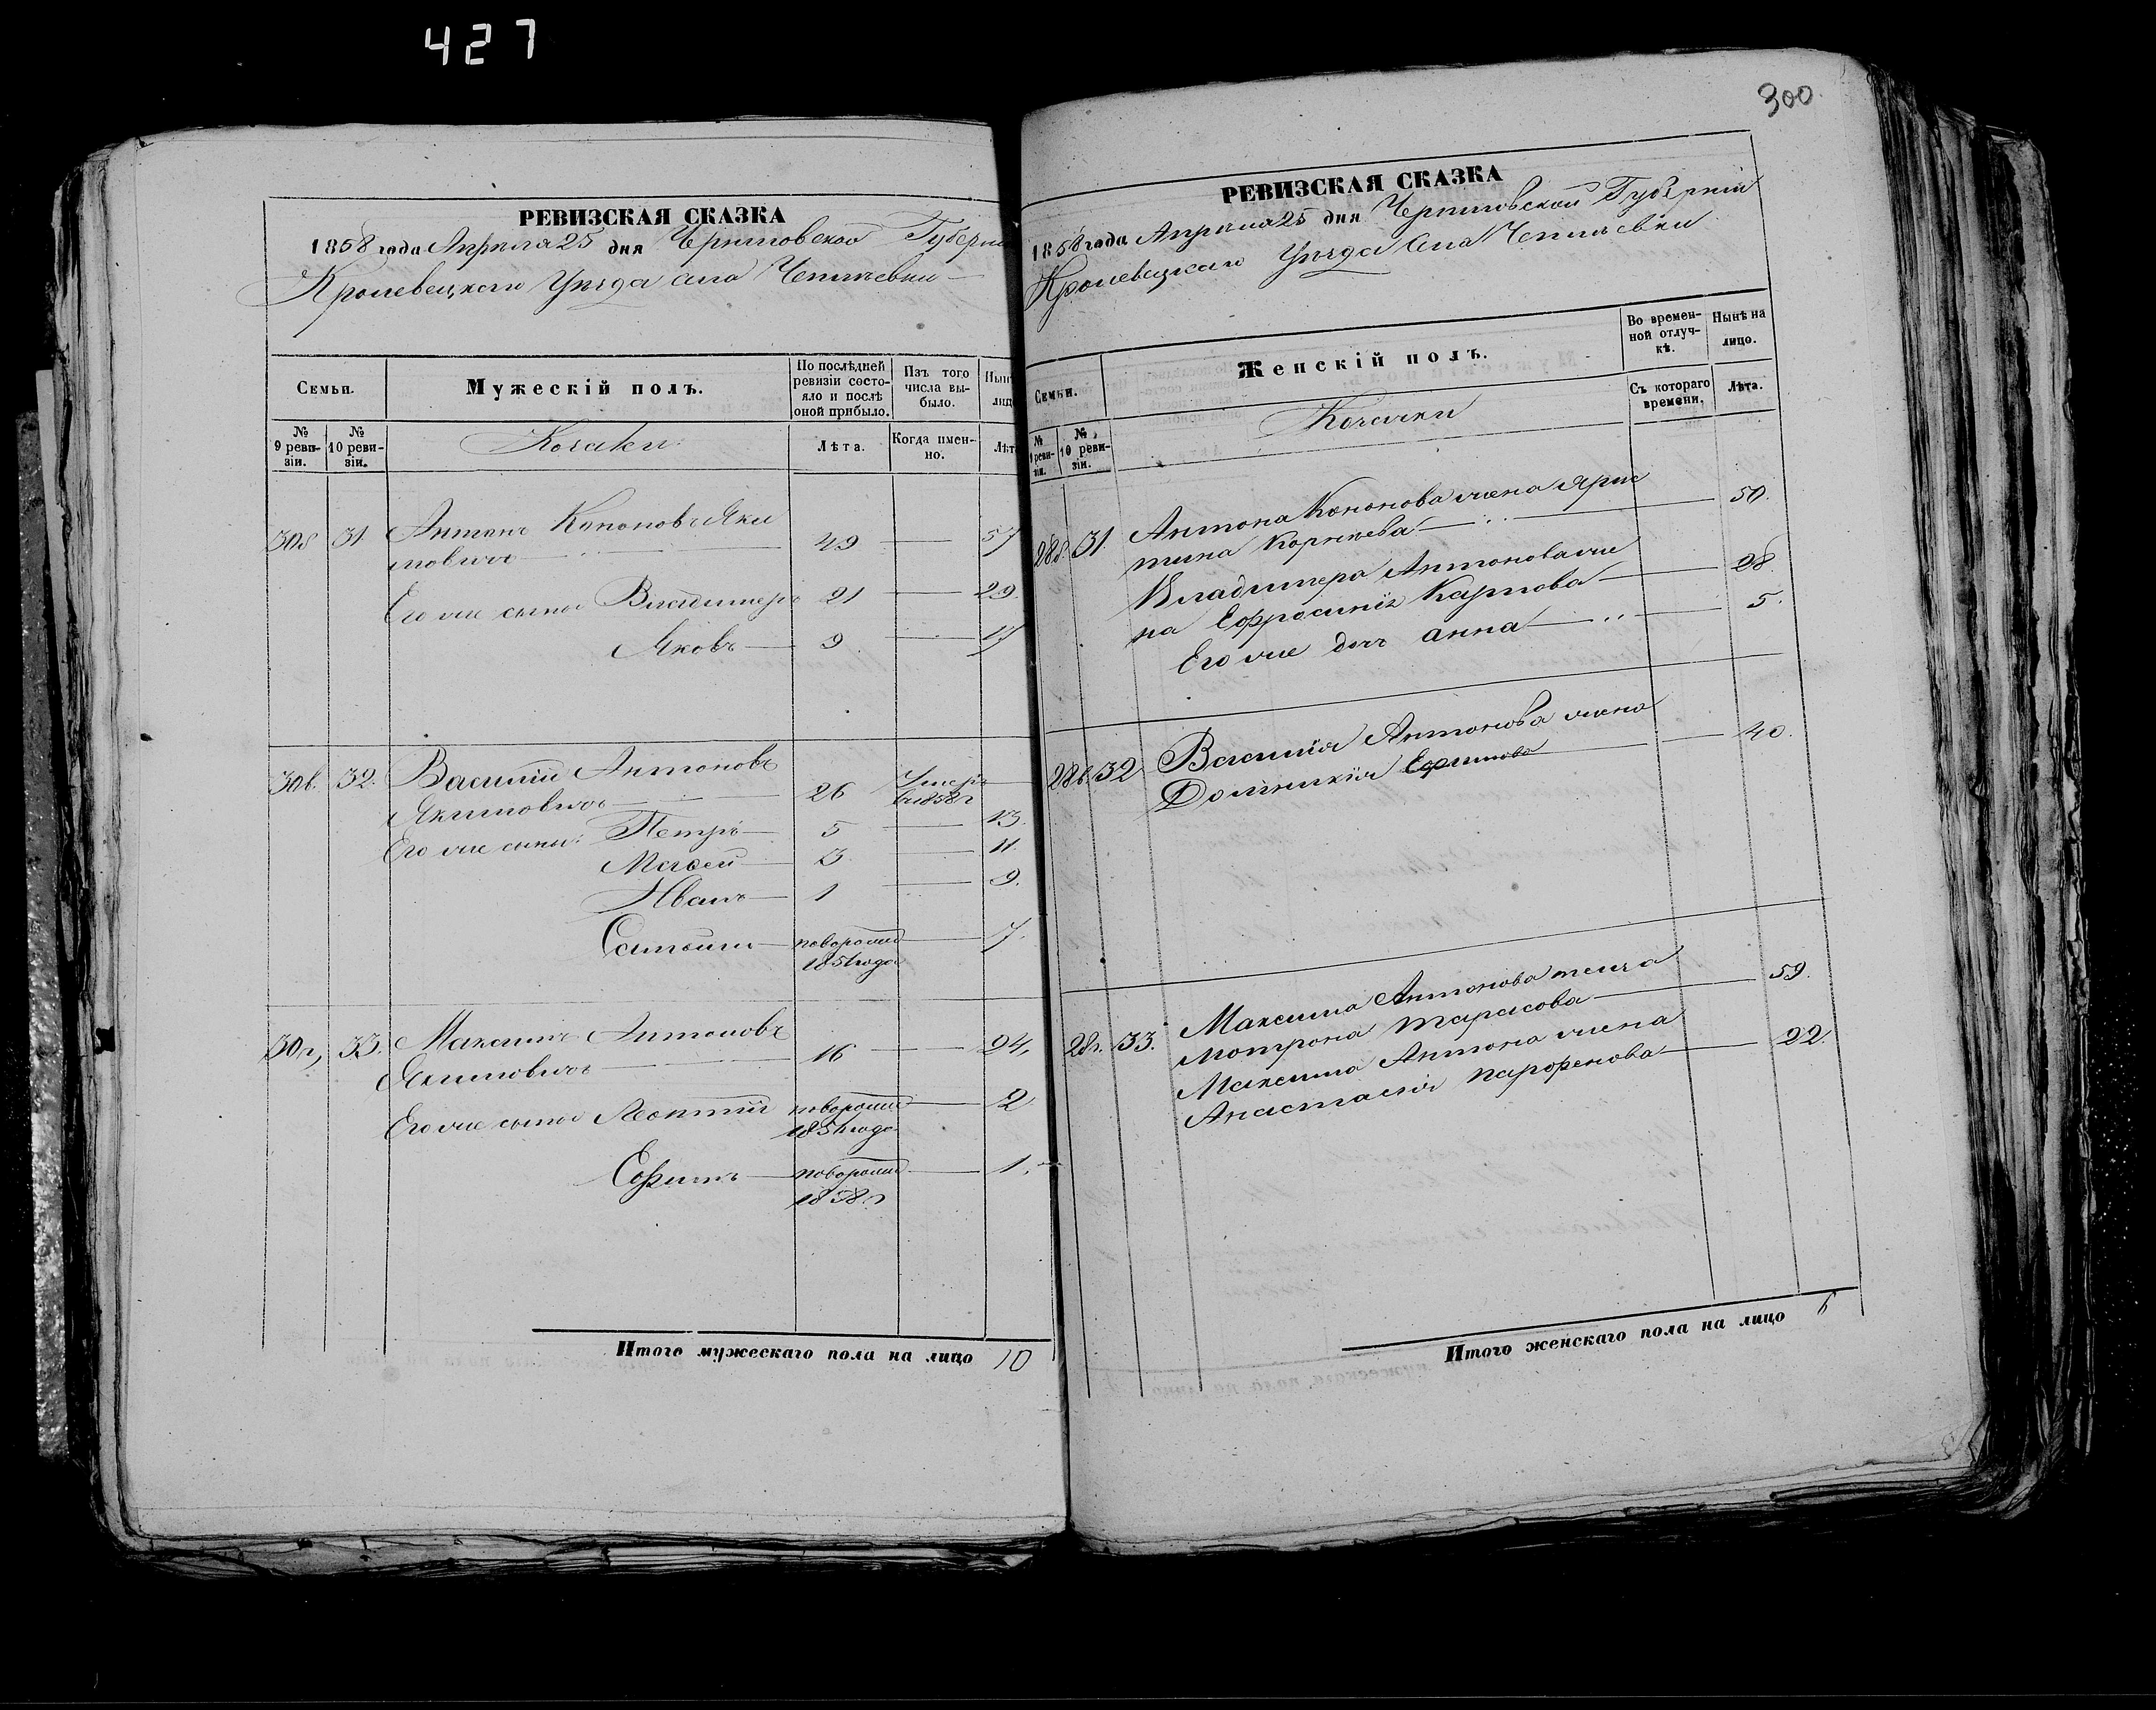 427
РЕВИЗСКАЯ СКАЗКА
1858 года Апреля 25 дня Черниговской Губерни
Кролевецкаго Уезда села Чепліевки
Семьи.
Мужескій полъ.
По послѣдней ревизіи состояло и послѣ оной прибыло.
Изъ того числа выбыло.
Нын
лиц
№ 9 ревизіи.
№ 10 ревизіи.
Козаки
Лѣта.
Когда именно.
Лѣт
30б 31 Антонъ Кононовъ Яки
мовичъ 49 57
Его же сыновья Владимеръ 21 29.
Яковъ 9 17
30в. 32. Василій Антоновъ
Якимовичъ 26 Умеръ въ 1858 г
Его же сыны: Петръ 5 13.
Матвей 3 11.
Иванъ 1 9.
новорожд 1851 года 7.
30г, 33. Максимъ Антоновъ
Якимовичъ 16 24,
Его же сыновья Леонтій новорожд 2
Ефимъ новорожд 1.
1858 г
Итого мужескаго пола на лицо 10
300.
РЕВИЗСКАЯ СКАЗКА
1858 года Апреля 25 дня Черниговской Губерніи
Кролевецкаго Уезда села Чепліевки
Семьи.
Женскій полъ.
Во временной отлучкѣ.
Нынѣ на лицо.
№ 9 ревизіи.
№ 10 ревизіи.
Козачки
Съ котораго времени.
Лѣта.
28б. 31. Антона Кононова жена Ярис
тина Корнеева 50.
Владимера Антонова же
на Ефросинія Карпова 28
Его же дочь анна 5.
28в. 32 Василія Антонова жена
Домникія Ефимова 40.
28г. 33. Максима Антонова теща
мотрона тарасова 59.
Максима Антона жена
Анастасія парфенова 22.
Итого женскаго пола на лицо 6